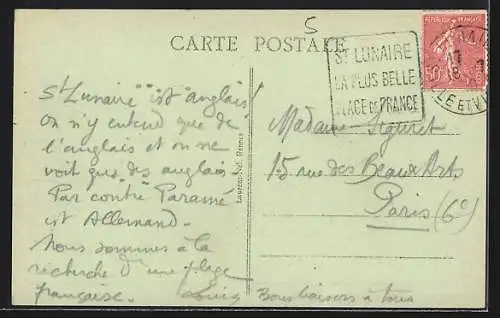 5
CARTE POSTALE
St LUNAIRE
LA PLUS BELLE
PLAGE DE FRANCE
REPUBLIQUE FRANÇAISE
50c
ILLE ET V
St Lunaire "ist" anglais!
on n'y entend que de
l'anglais et on ne
voit que des anglais!
Par contre Paramé
ist Allemand.
Nous sommes à la
recherche d'une plage
française. Louis Bons baisers à tous
Laurent-Nel, Rennes
Madame Siguret
15 rue des Beaux Arts
Paris (6e)